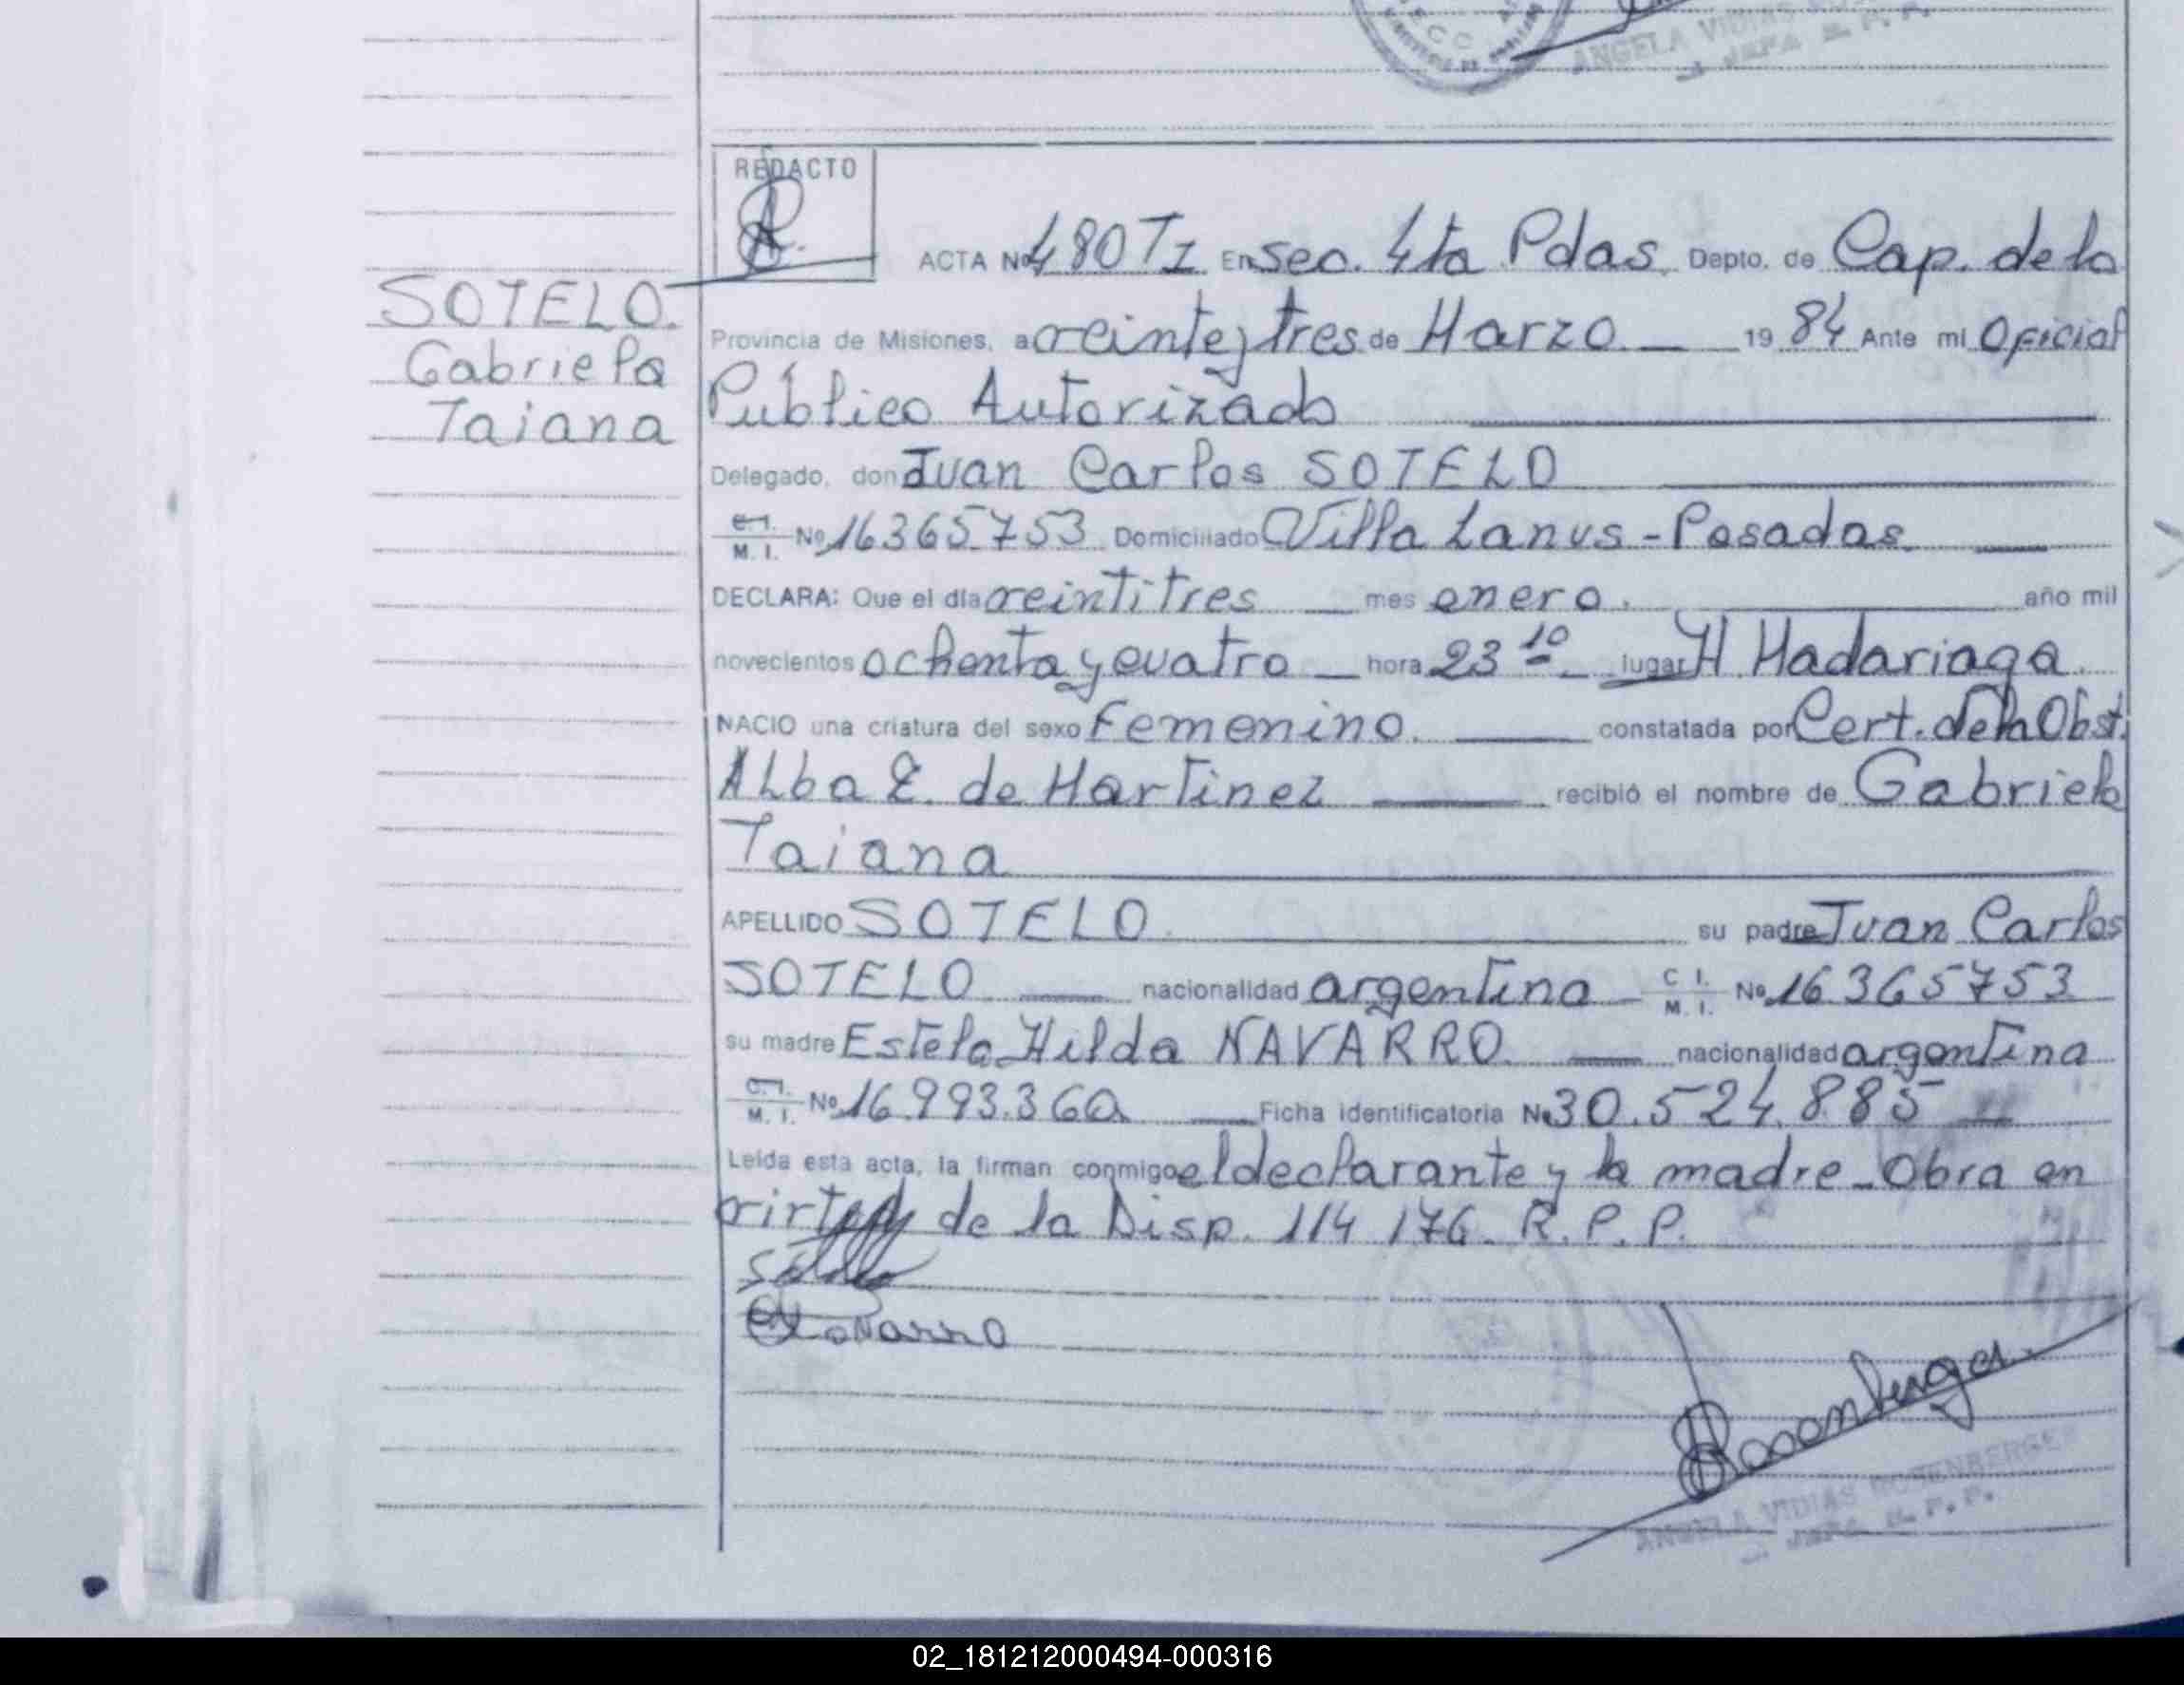 ANGELA VIDIAS
JEFA R. P. P.
REDACTO
ACTA Nº 480 TI En Sec. 4ta Pdas. Depto. de Cap. de la
SOTELO.
Provincia de Misiones, a veinte y tres de Marzo. 19 84 Ante mi Oficial
Gabriela
Público Autorizado
Taiana
Delegado, don Juan Carlos SOTELO
C. I. M. I. Nº 16365753 Domiciliado Villa Lanus - Posadas.
DECLARA: Que el día veintitres mes enero. año mil
novecientos ochenta y cuatro hora 23 10 lugar H Madariaga.
NACIO una criatura del sexo Femenino. constatada por Cert. de la Obst.
Alba E. de Martinez recibió el nombre de Gabriela
Taiana
APELLIDO SOTELO su padre Juan Carlos
SOTELO nacionalidad argentina C I. M. I. Nº 16 365753
su madre Estela Hilda NAVARRO. nacionalidad argentina
C. I. M. I. Nº 16.993.360 Ficha identificatoria Nº 30.524.885
Leída esta acta, la firman conmigo el declarante y la madre - Obra en
virtud de la Disp. 114 176. R. P. P.
Rosenberger
ANGELA VIDIAS ROSENBERGER
JEFA R. P. P.
02_181212000494-000316